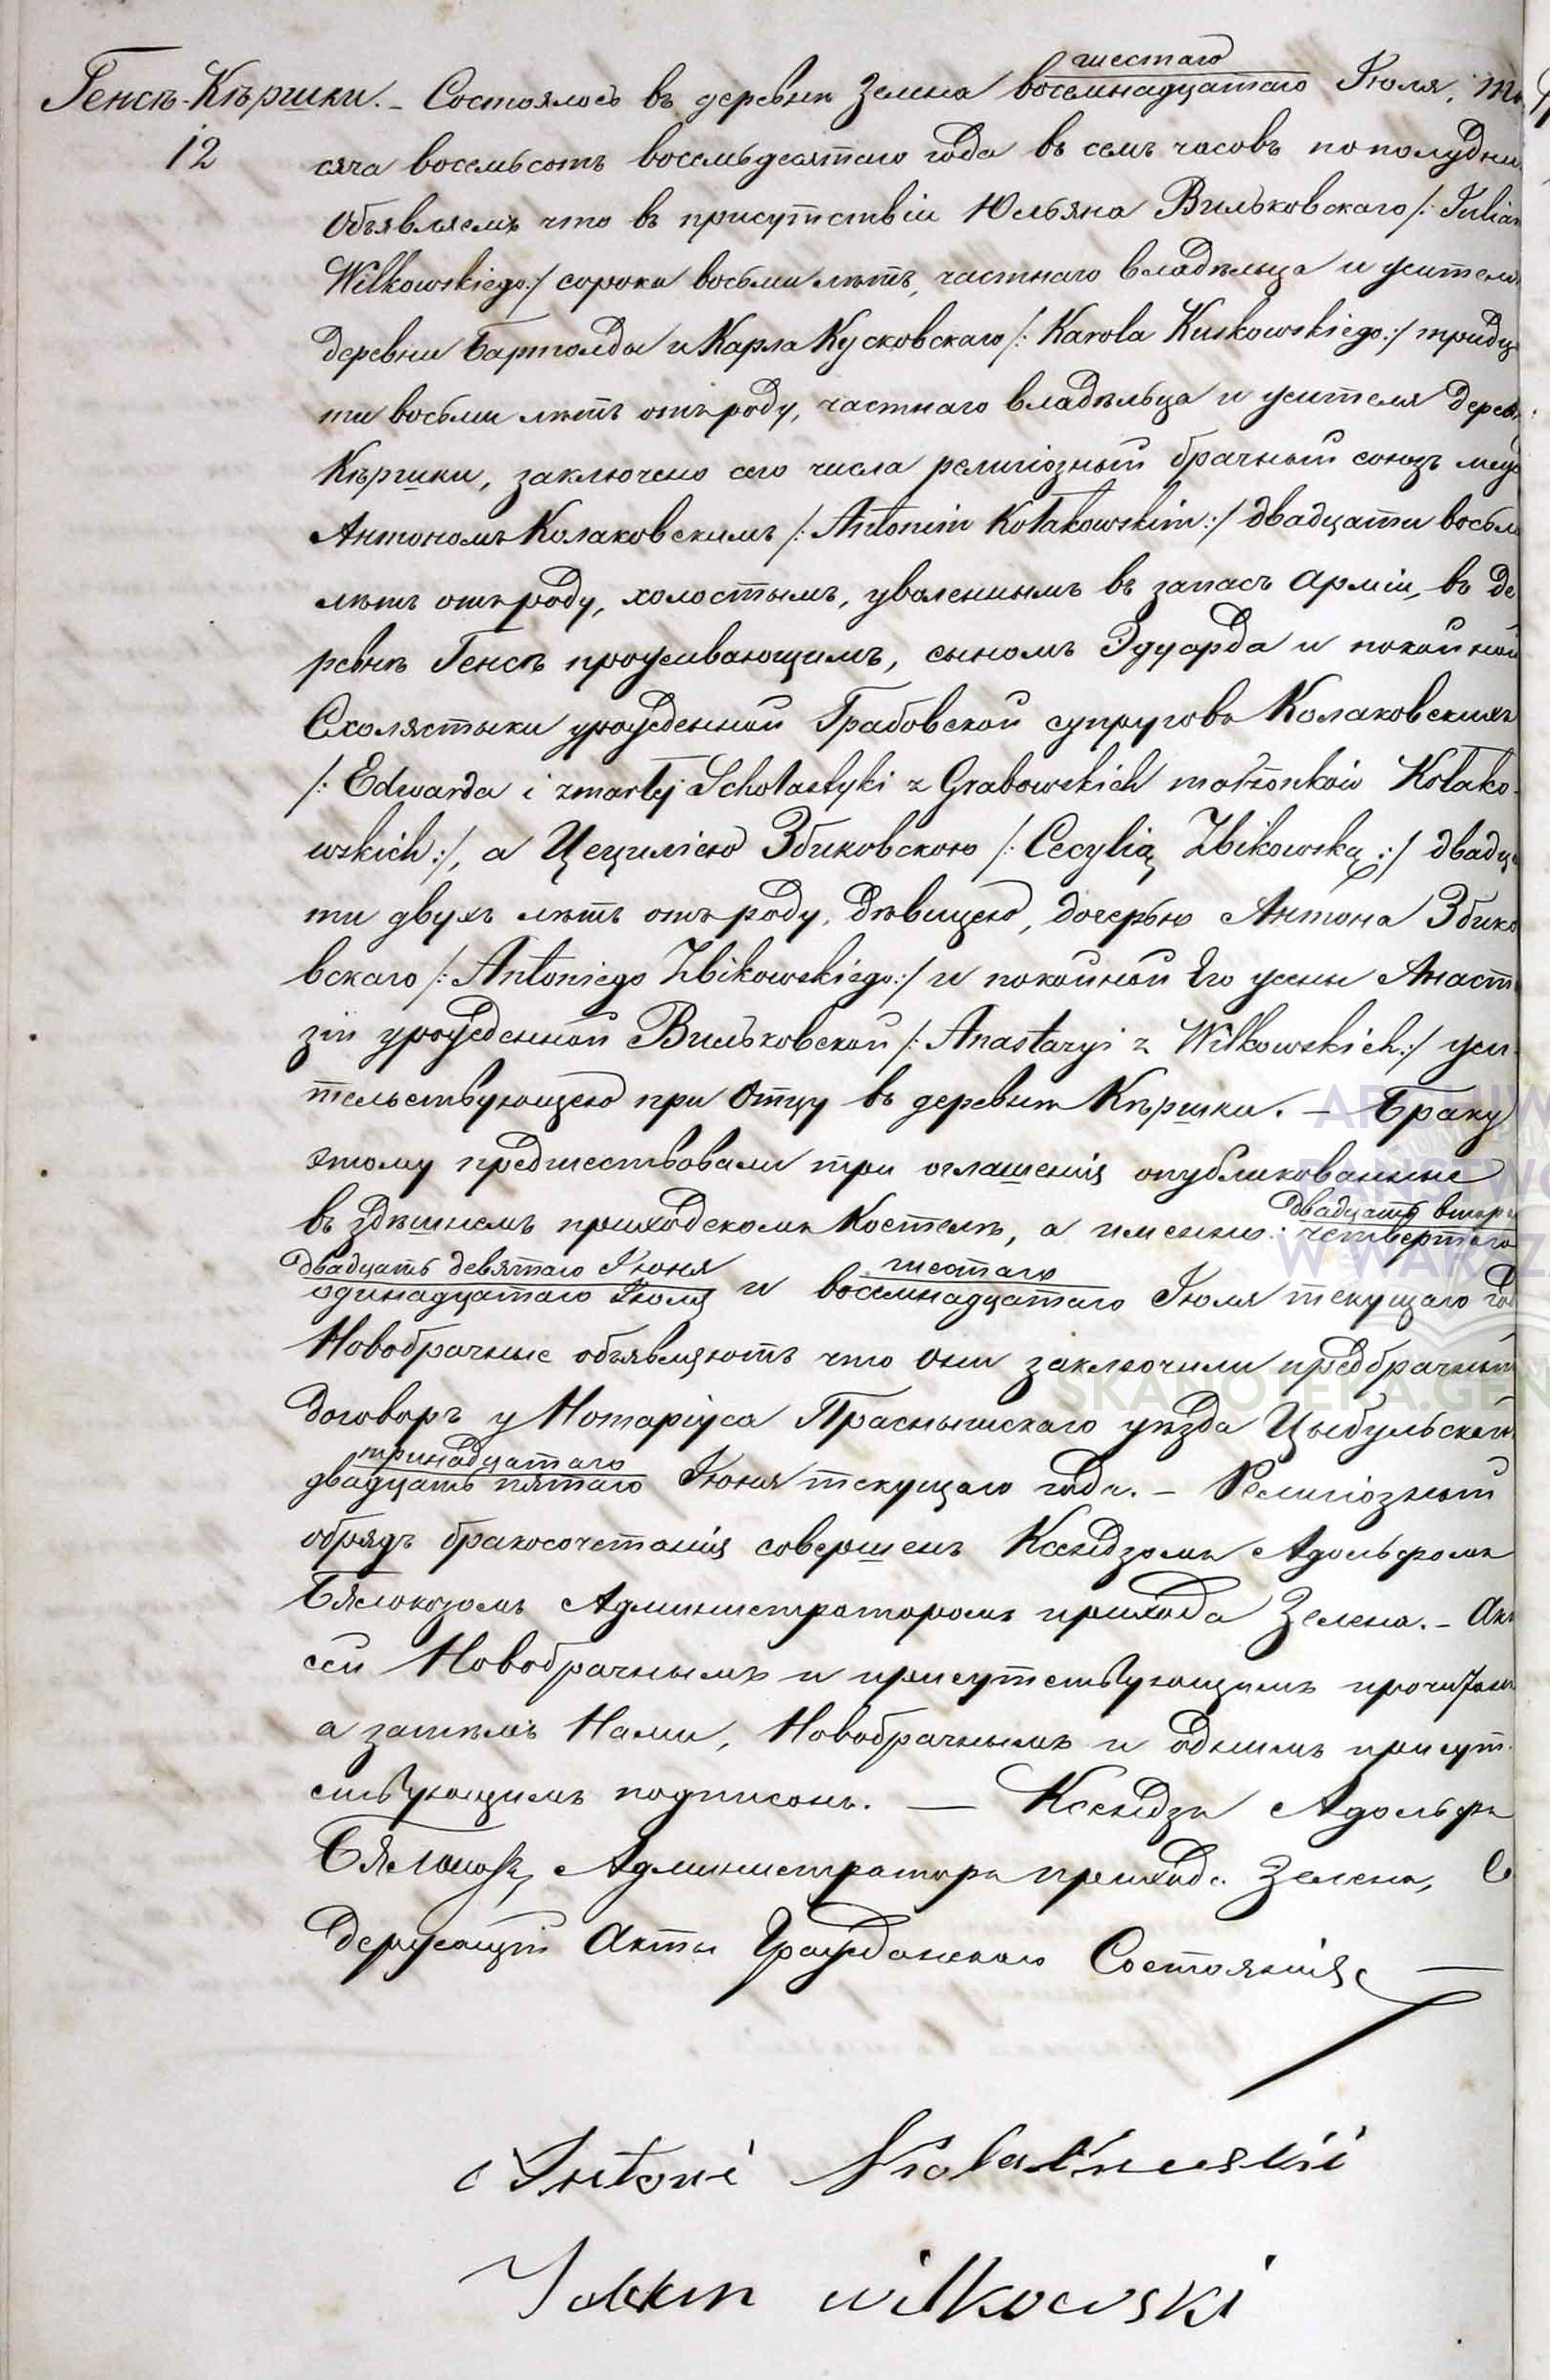 Генсъ-Кѣршки. – Состоялось въ деревнѣ Зелена шестаго/восемнадцатаго Іюля, ты
12 сяча восемьсотъ восемьдесятаго года въ семь часовъ пополудни
Объявляемъ что въ присутствіи Юльяна Вильковскаго /: Julian
Wilkowskiego :/ сорока восьми лѣтъ, частнаго владѣльца и жителя
деревни Бартолды и Карла Кусковскаго /: Karola Kuskowskiego :/ тридца
ти восьми лѣтъ отъ роду, частнаго владѣльца и жителя дерев
Кѣршки, заключено сего числа религіозный брачный союзъ межд
Антономъ Колаковскимъ /: Antonim Kołakowskim :/ двадцати восьм
лѣтъ отъ роду, холостымъ, уволеннымъ въ запасъ Арміи, въ де
ревнѣ Генсъ проживающимъ, сыномъ Эдуарда и покойной
Схолястыки урожденной Грабовской супруговъ Колаковскихъ
/: Edwarda i zmarłej Scholastyki z Grabowskich małżonków Kołako
wskich :/, а Цециліею Збиковскою /: Cecylią Zbikowską :/ двадца
ти двухъ лѣтъ отъ роду, дѣвицею, дочерью Антона Збико
вскаго /: Antoniego Zbikowskiego :/ и покойной Его жены Анаста
зіи урожденной Вильковской /: Anastazyi z Wilkowskich :/ жи
тельствующею при Отцу въ деревнѣ Кѣршки. – Браку
этому предшествовали три оглашенія опубликованные
въ здѣшнемъ приходскомъ Костелѣ, а именно: двадцать втор/четвертаго
двадцать девятаго Іюня/одинадцатаго Іюля и шестаго/восемнадцатаго Іюля текущаго год
Новобрачные объявляютъ что они заключили предбрачный
договоръ у Нотаріуса Праснышскаго уѣзда Цыбульскаго
тринадцатаго/двадцать пятаго Іюня текущаго года. – Религіозный
обрядъ бракосочетанія совершенъ Ксендзомъ Адольфомъ
Бялокозомъ Администраторомъ прихода Зелена. – Акт
сей Новобрачнымъ и присутствующимъ прочитанъ
а затѣмъ Нами, Новобрачнымъ и однимъ присут
ствующимъ подписанъ. — Ксендзъ Адольфъ
Бялокозъ, Администраторъ прихода Зелена, Со
держащій Акты Гражданскаго Состоянія. —
Antoni Kołakowski
Julian Wilkowski
ARCHIW
PAŃSTWO
W WARSZ
SKANOTEKA.GEN